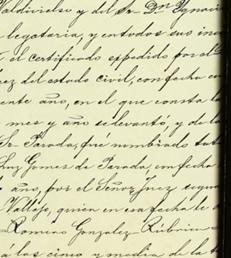 Valdivielso y del Sr. Dn. Ygnacio
legataria, y en todos sus inc
el certificado expedido por el
ez del estado civil, con fecha
ente año, en el que consta l
mes y año se levantó, y de la
Sr. Parada, fué nombrado tut
Luz Gomez de Parada, con fecha
año, por el Señor Juez segun
Vallejo, quien en esa fecha le d
Romeno Gonzalez Rúbrica
á las cinco y media de la t